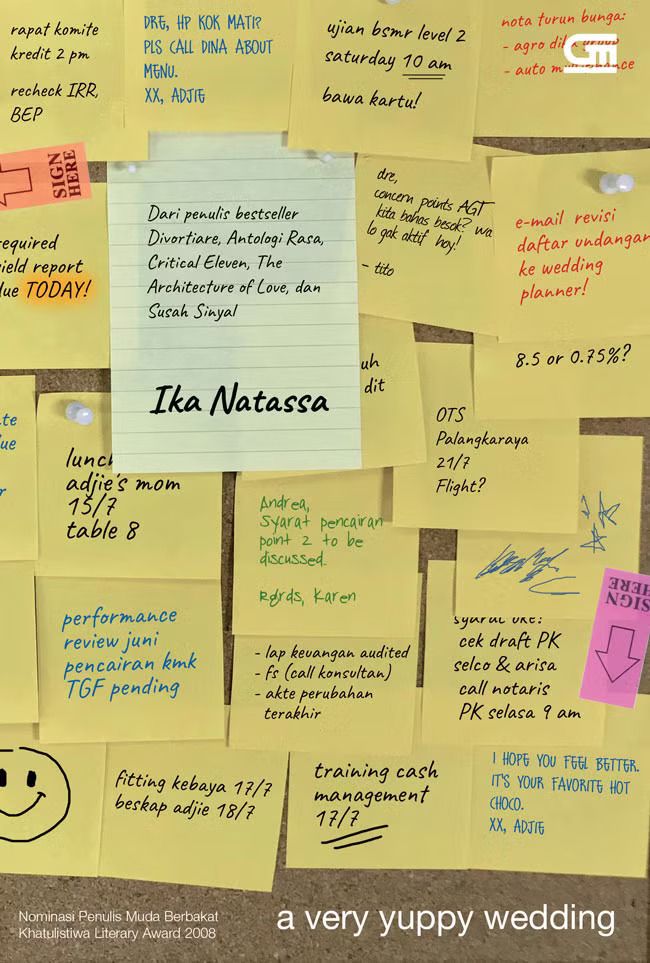 rapat komite
kredit 2 pm
recheck IRR,
BEP
DRE, HP KOK MATI?
PLS CALL DINA ABOUT
MENU.
XX, ADJIE
ujian bsmr level 2
saturday 10 am
bawa kartu!
nota turun bunga:
- agro
- auto
SIGN
HERE
required
yield report
due TODAY!
Dari penulis bestseller
Divortiare, Antologi Rasa,
Critical Eleven, The
Architecture of Love, dan
Susah Sinyal
Ika Natassa
dre,
concern points AGT
kita bahas besok? wa
lo gak aktif boy!
- tito
e-mail revisi
daftar undangan
ke wedding
planner!
8.5 or 0.75%?
uh
dit
OTS
Palangkaraya
21/7
Flight?
lunch
adjie's mom
15/7
table 8
Andrea,
Syarat pencairan
point 2 to be
discussed.
Rgrds, Karen
SIGN
HERE
performance
review juni
pencairan kmk
TGF pending
- lap keuangan audited
- fs (call konsultan)
- akte perubahan
terakhir
syarat oke!
cek draft PK
selco & arisa
call notaris
PK selasa 9 am
fitting kebaya 17/7
beskap adjie 18/7
training cash
management
17/7
I HOPE YOU FEEL BETTER.
IT'S YOUR FAVORITE HOT
CHOCO.
XX, ADJIE
Nominasi Penulis Muda Berbakat
Khatulistiwa Literary Award 2008
a very yuppy wedding